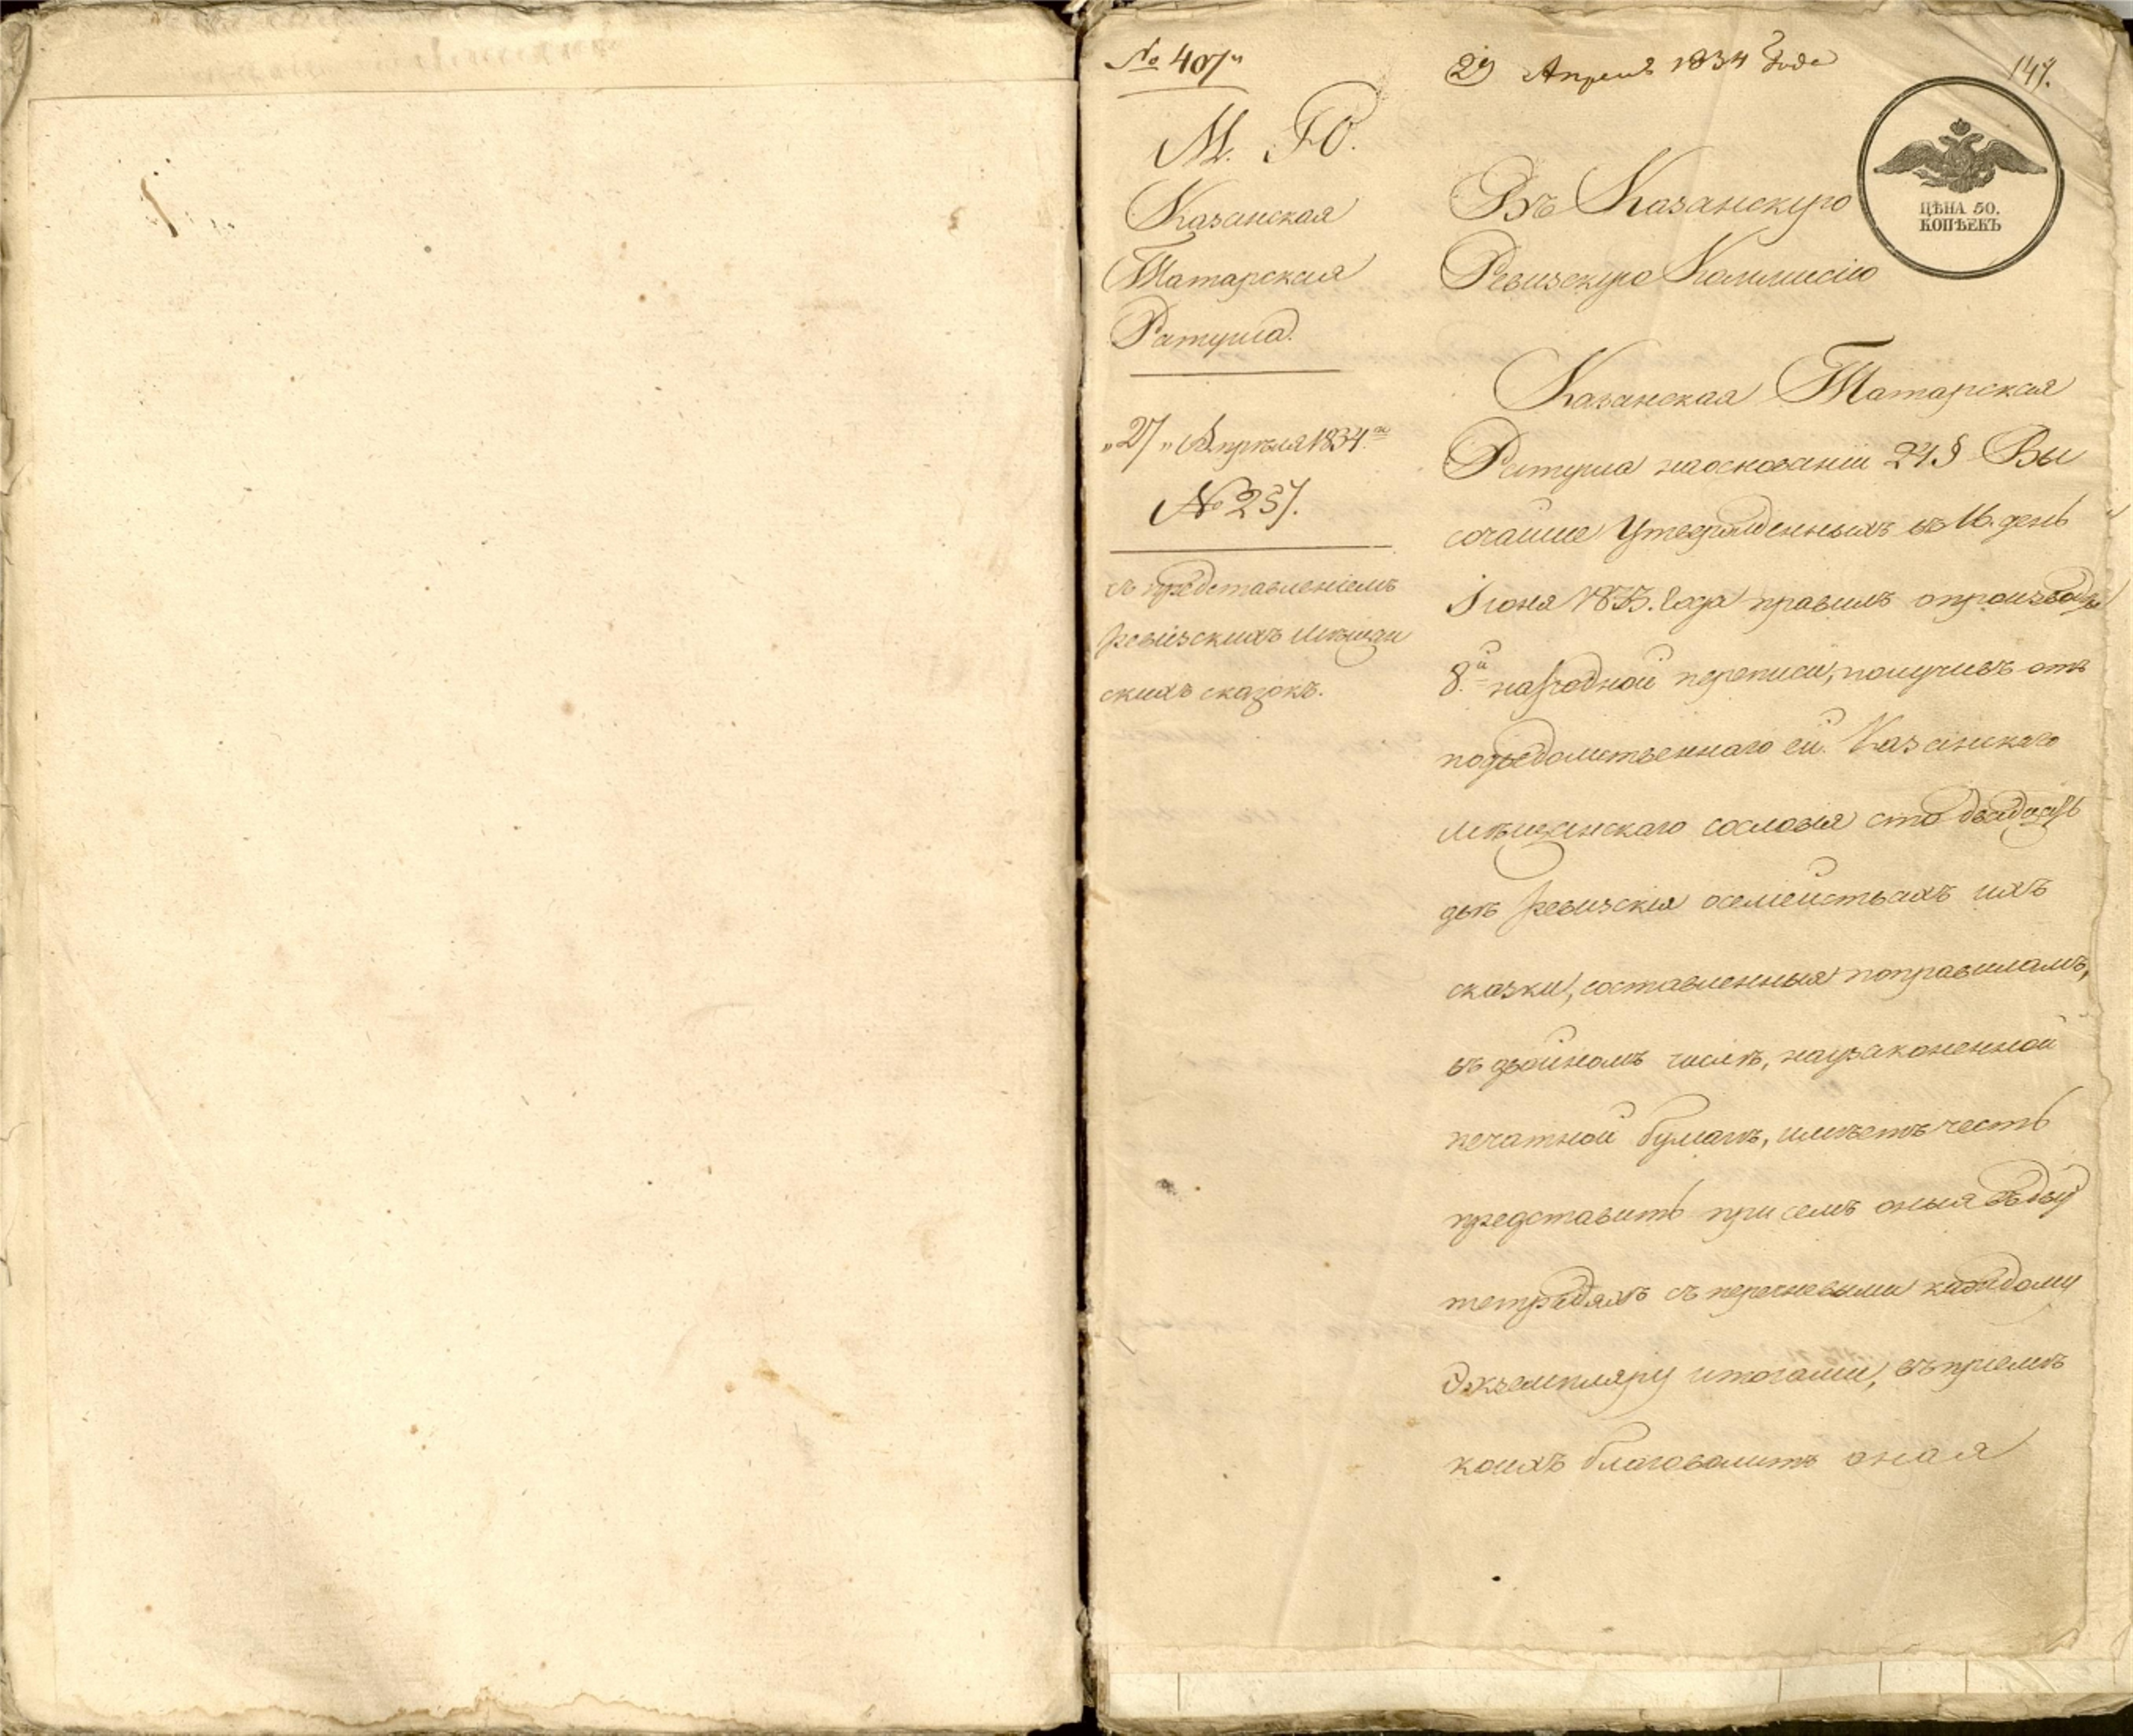 № 407
29 Апреля 1834 года
147.
М. Ю.
Казанская
Татарская
Ратуша.
„27„ Апреля 1834го
№ 257.
съ представленіемъ
ревизскихъ мѣщан
скихъ сказокъ.
ЦѢНА 50.
КОПѢЕКЪ
Въ Казанскую
Ревизскую Коммисію
Казанская Татарская
Ратуша наосновании 24 § Вы
сочайше Утвержденныхъ въ 16. день
Іюня 1833. Года правилъ опроизводствѣ
8.й народной переписи, получивъ отъ
подведомственнаго ей Казанскаго
мѣщанскаго сословія сто двадцать
двѣ ревизскія осемействахъ ихъ
сказки, составленныя поправиламъ,
въ двойномъ числѣ, наузаконенной
печатной бумагѣ, имѣетъ честь
представить при семъ оныя въ дву
тетрадяхъ съ перечневыми каждому
Экземпляру итогами, въ приемѣ
коихъ благоволитъ оная